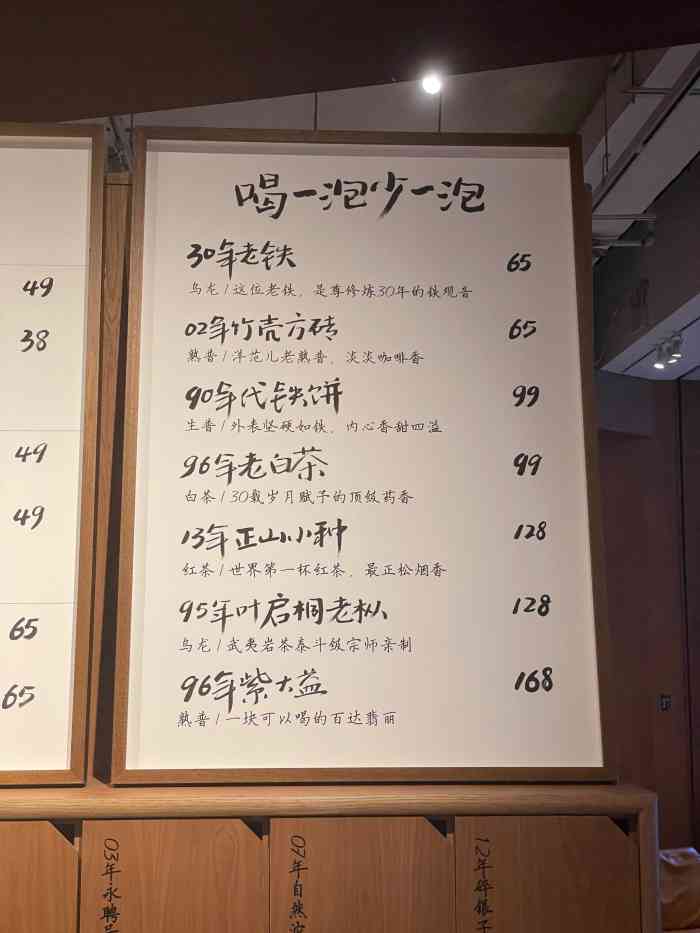 喝一泡少一泡
30年老铁 65
乌龙/这位老铁，是尊修炼30年的铁观音
02年竹壳方砖 65
熟普/洋范儿老熟普，淡淡咖啡香
90年代铁饼 99
生普/外表坚硬如铁，内心香甜四溢
96年老白茶 99
白茶/30载岁月赋予的顶级药香
13年正山小种 128
红茶/世界第一杯红茶，最正松烟香
95年叶启桐老枞 128
乌龙/武夷岩茶泰斗级宗师亲制
96年紫大益 168
熟普/一块可以喝的百达翡丽
49
38
49
49
65
65
03年永聘
07年自然
12年碎银子